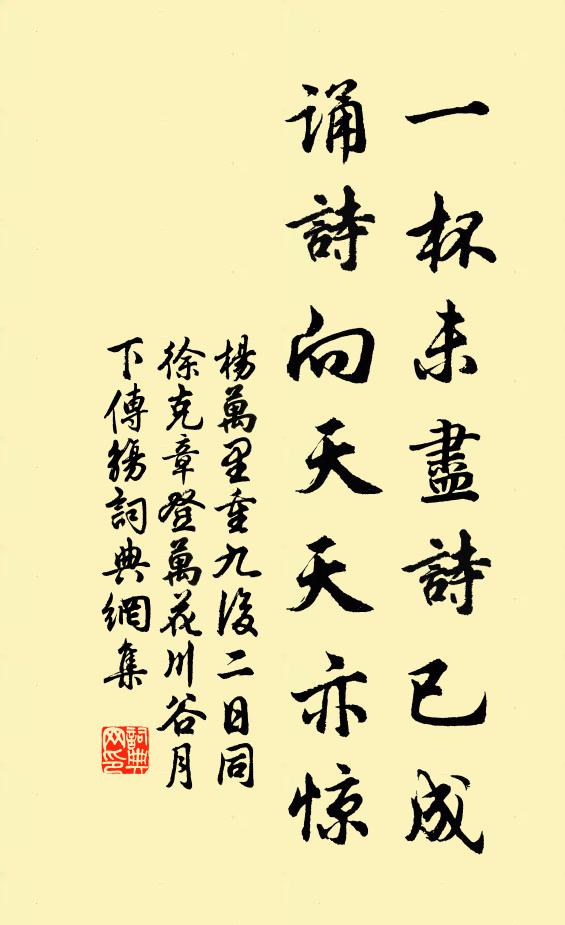 一杯未盡詩已成
誦詩向天天亦惊
楊萬里重九後二日同
徐克章登萬花川谷月
下傳觴詞典網集
詞典
网印